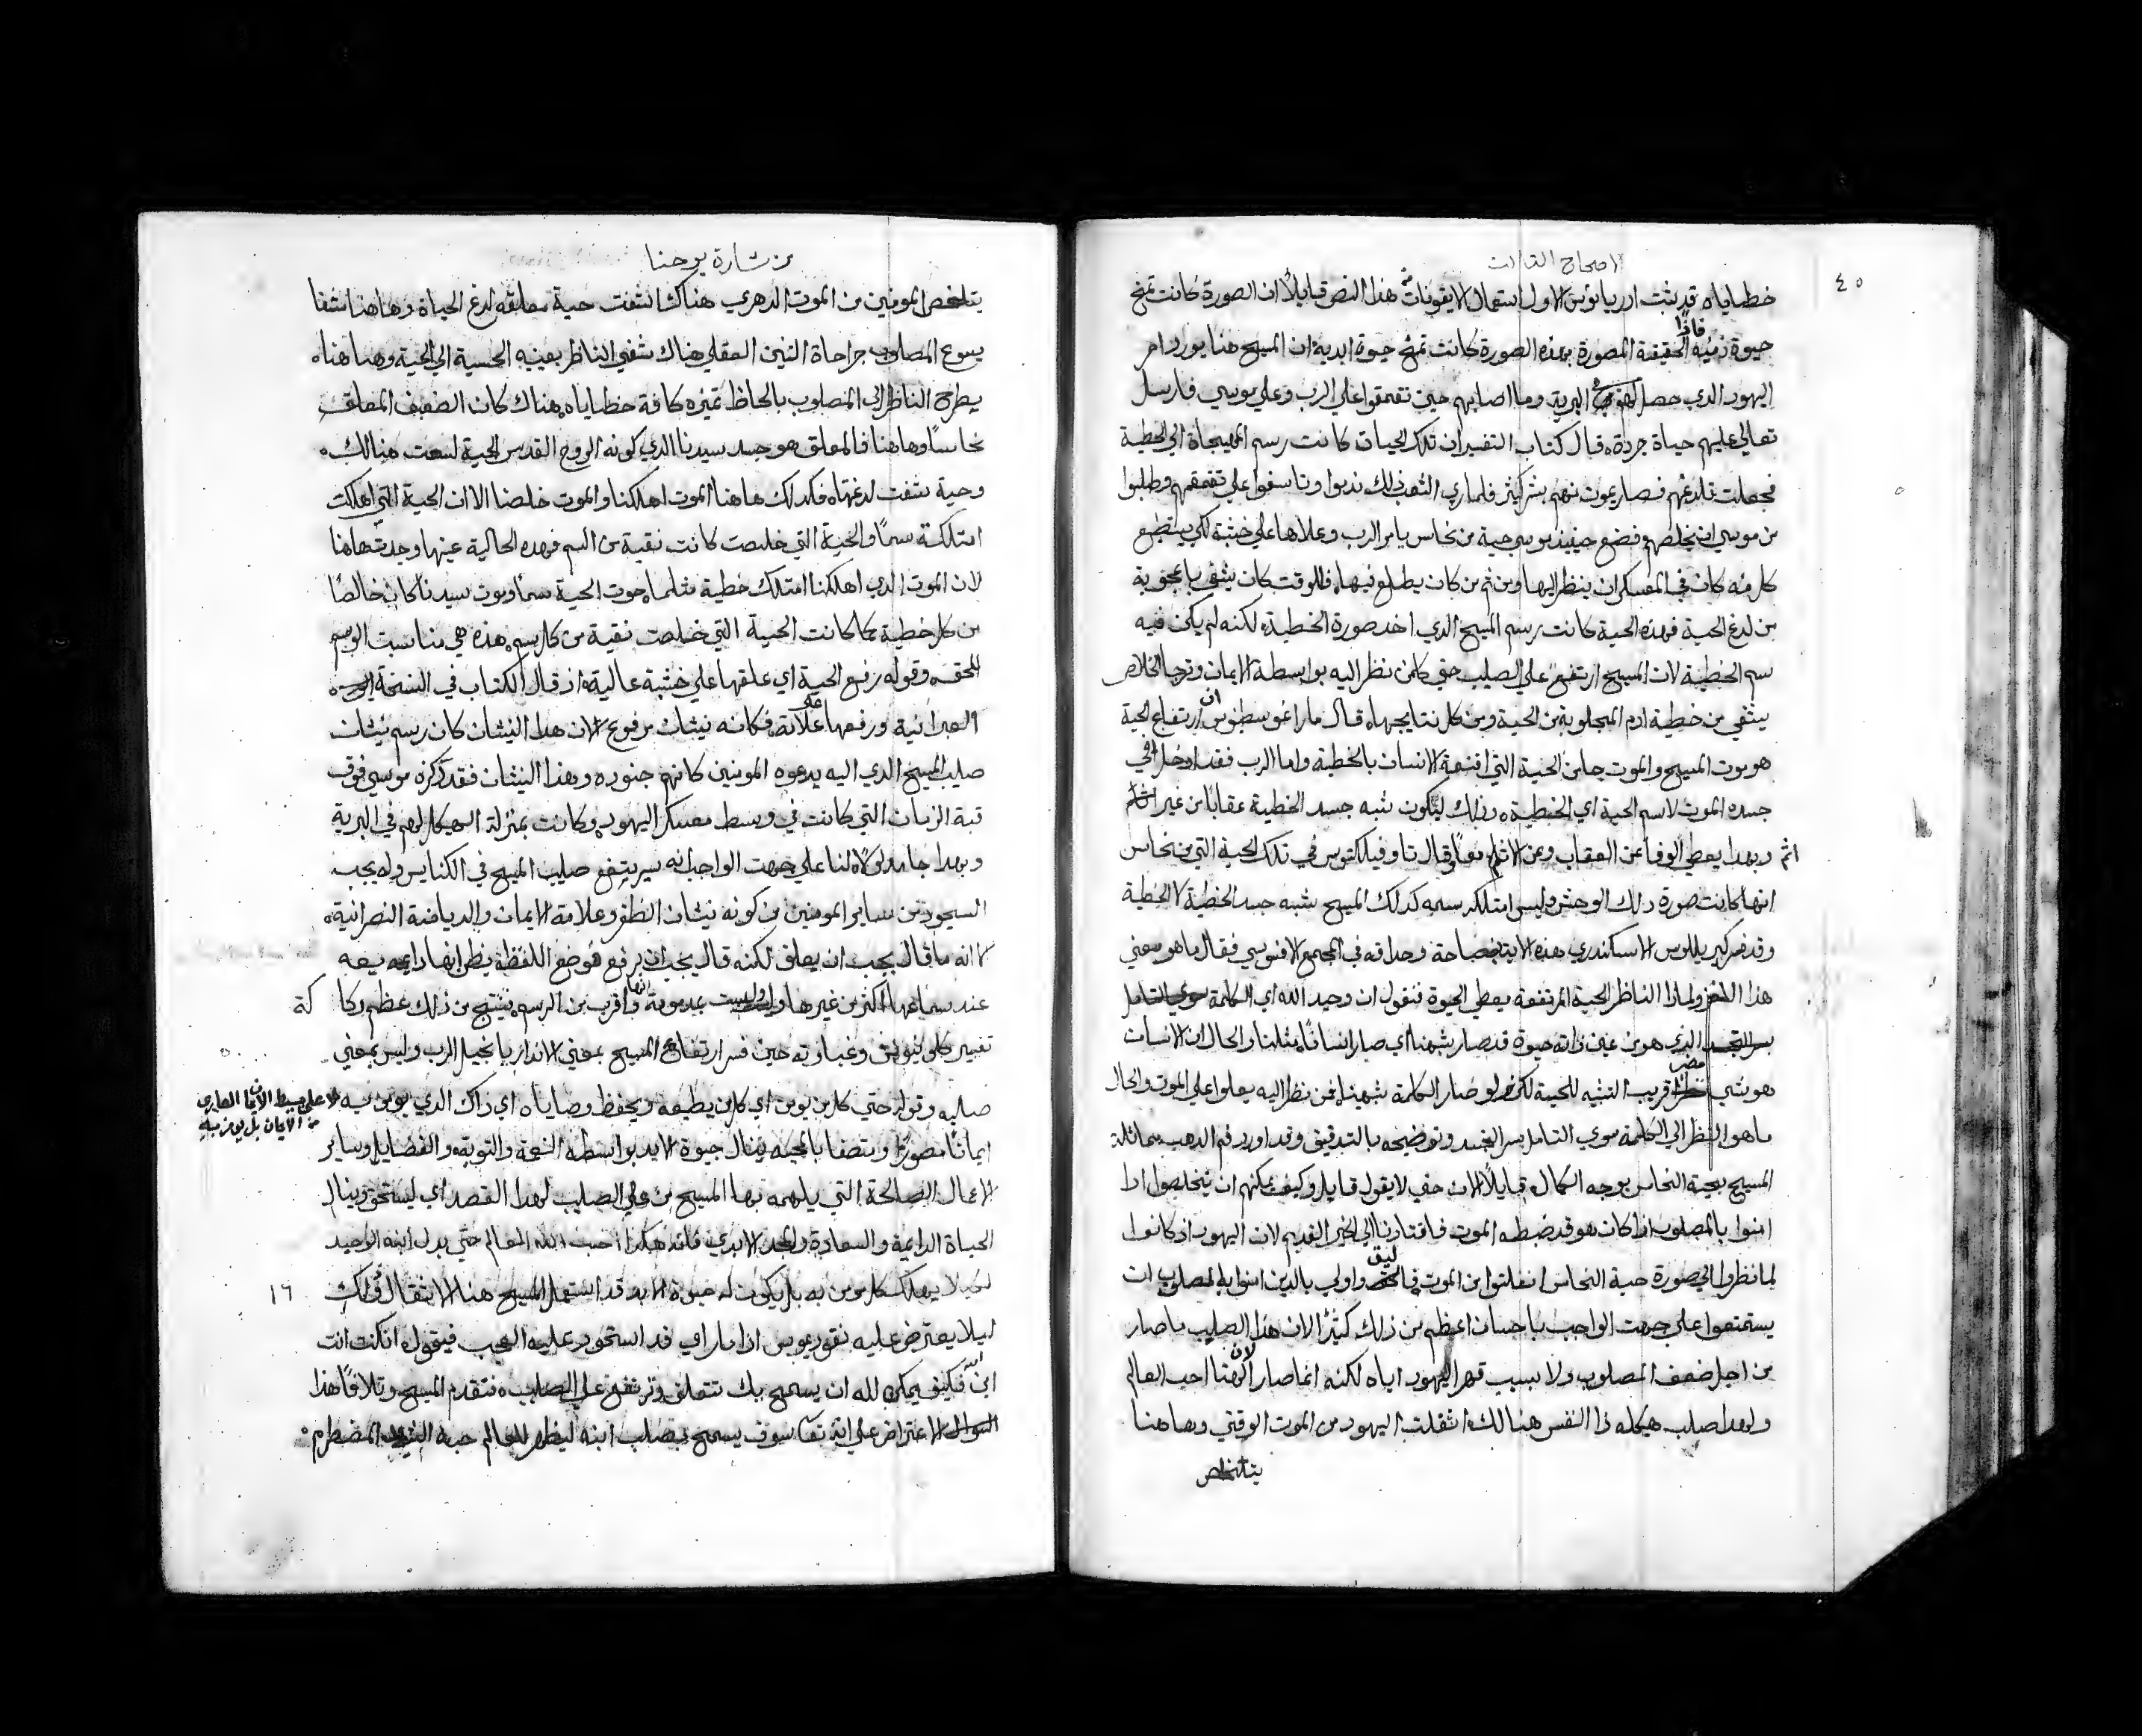 الاصحاح الثالث
٤٥
خطاياه قد يثبت ادريانوس الاول استعمال الايقونات من هذا النص قايلاً ان الصورة كانت تمنح
حيوة زمنيه فاذًا الحقيقة المصورة بهذه الصورة كانت تمنح حيوة ابدية ان المسيح هنا يورد امر
اليهود الذي حصل لهم في البرية وما اصابهم حين تقمقموا علي الرب وعلي موسي فارسل
تعالي عليهم حياة جردة قال كتاب التفسير ان تلك الحيات كانت رسم الحية الي الخطية
فجعلت تلدغهم فصار يموت منهم بشر كثير فلما راي الشعب ذلك ندموا وتاسفوا علي تقمقمهم وطلبوا
من موسي ان يخلصهم فصنع حينيذ موسي حية من نحاس بامر الرب وعلاها علي خشبة لكي يستطيع
كل منه كان في المعسكر ان ينظر اليها ومن ثم من كان يطلع فيها فللوقت كان يشفي باعجوبة
من لدغ الحية فهذه الحية كانت رسم المسيح الذي اخد صورة الخطية لكنه لم يكن فيه
سم الخطية لان المسيح ارتفع علي الصليب حتي كلمن نظر اليه بواسطة الايمان وترجا الخلاص
يشفي من خطية ادم المجلوبة من الحية ومن كل نتايجها قال ماراغوسطوس ان ارتفاع الحية
هو موت المسيح والموت جا من الحية التي اقنعت الانسان بالخطية واما الرب فقد ادخل في
جسده الموت لا سم الحية اي الخطية وذلك ليكون شبه جسد الخطية عقابًا من غير اثم
وبهدا يعطي الوفا عن العقاب وعن الاثم معًا قال تاوفيلكتوس في تلك الحية التي من نحاس
انها كانت صورة دلك الوحش وليس امتلكة سمه كدلك المسيح شبه جسد الخطية لا الخطية
وقد فسر كيريللوس الاسكندري هذه الاية بفصاحة وحداقه في المجمع الافسوسي فقال ما هو معني
هذا اللغز ولماذا الناظر الحية المرتفعة يعطي الحيوة فنقول ان وحيد الله اي الكلمة
الذي هو من عين ذاته حيوة قد صار بشبهنا اي صار انسانًا مثلنا والحال ان الانسان
هو شي مضر قريب التشبه للحية لكن لو صار الكلمة شبهينا فمن نظر اليه يعلوا علي الموت والحال
ما هو النظر الي الكلمة سوي التامل بسر التجسد وتوضيحه بالتدقيق وقد اورد فم الدهب مماثلة
المسيح بحية النحاس بوجه الكمال قايلاً لان حتي لا يقول قايل وكيف يمكنهم ان يتخلصوا ادا
امنوا بالمصلوب اذا كان هو قد ضبطه الموت فاقتادنا الي الخبر القديم لان اليهود اذ كانوا
لما نظروا الي صورة حية النحاس انفلتوا من الموت فاليق واولي بالدين امنوا بالمصلوب ان
يستمتعوا علي جهت الواجب باحسان اعظم من ذلك كثيرًا لان هذا الصليب ما صار
من اجل ضعف المصلوب ولا بسبب قهر اليهود اياه لكنه انما صار لان الهنا احب العالم
ولهدا صلب هيكله ذا النفس هنالك انفلت اليهود من الموت الوقتي وهاهنا
يتخلص
من بشارة يوحنا
يتخلص المومنين من الموت الدهري هناك شفت حية معلقه لدغ الحياة وهاهنا شفا
يسوع المصلوب جراحاة التنين العقلي هناك شفي الناظر بعينيه الحسية الي الحية وهاهناه
يطرح الناظر الي المصلوب بالحاظ تميزه كافة خطاياه هناك كان الضعيف المعلق
نحاسًا وهاهنا فالمعلق هو جسد سيدنا الذي كونه الروح القدس الحية لسعت هنالك
وحية شفت لدغتها فكدلك هاهنا الموت اهلكنا والموت خلصنا الا ان الحية التي اهلكت
امتلكة سمًا والحية التي خلصت كانت نقية من السم فهده الحالية عينها وجدت هاهنا
لان الموت الدي اهلكنا امتلك خطية مثلما حوت الحية سمًا وموت سيدنا كان خالصًا
من كل خطية كما كانت الحية التي خلصت نقية من كل سم هذه هي مناسبت الرسم
للحق وقوله رفع الحية اي علقها علي خشبة عالية اذ قال الكتاب في النسخة
العبرانية ورفعها علي علانة فكانه نيشان مرفوع لان هدا النيشان كان رسم نيشان
صليب المسيح الدي اليه يدعوه المومنين كانهم جنوده وهذا النيشان فقد ركزه موسي فوق
قبة الزمان التي كانت في وسط معسكر اليهود وكانت بمنزلة الهيكل لهم في البرية
وبهدا جا مدلولاً لنا علي جهت الواجب انه سيرتفع صليب المسيح في الكنايس وله يجب
السجود من ساير المومنين من كونه نيشان الظفر وعلامة الايمان والديانة النصرانية
لانه ما قال يجب ان يعلق لكنه قال يجب ان يرفع فوضع اللفظة
عند سماعها اكثر من غيرها وليست بعدومة وانها اقرب من الرسم ينتج من ذلك عظم ركا كة
تفسير كلوينوس وغباوته حين فسر ارتفاع المسيح بمعني الاندار بانجيل الرب وليس بمعني
صلبه وقوله حتي كل من يومن اي كل من يطيعه ويحفظ وصاياه اي ذاك الدي يومن به لا علي بسيط الايمان العاري
من الايمان بل يومن به
ايمانًا مصورًا ومتصفا بالمحبه ينال حيوة الابد بواسطة النعمة والتوبة والفضايل وساير
الاعمال الصالحة التي يلهمه بها المسيح من علي الصليب لهدا القصد اي ليستحق وينال
الحياة الدايمة والسعادة والمجد الابدي فانه هكذا احب الله العالم حتي بدل ابنه الوحيد
١٦
لكيلا يهلك كل من يومن به بل يكون له حيوة الابد قد استعمل المسيح هنا الانتقال وذلك
ليلا يعترض عليه نيقوديموس اذا ما راي قد استحود عليه العجب فيقول ان كنت انت
ابن الله فكيف يمكن لله ان يسمح بك تتعلق وترتفع علي الصليب فتقدم المسيح وتلافا هذا
السوال الاعتراض علي انه تعا سوف يسمح بصلب ابنه ليظهر للعالم حبه الشديد المضطرم